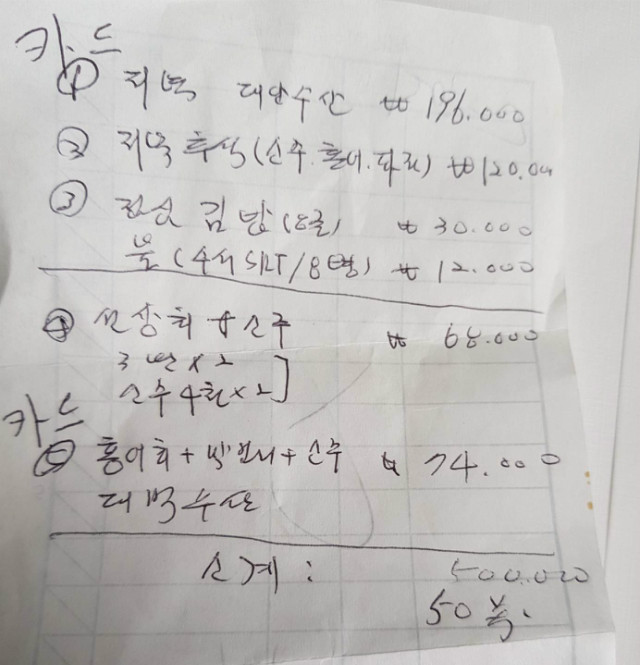 카드
① 저녁 대안수산 ₩ 196.000
② 저녁 후식(소주.홍어.파전) ₩ 120.00
③ 점심 김밥(8줄) ₩ 30.000
물 ( /8병) ₩ 12.000
④ 회 + 소주 ₩ 68.000
3 × 2
소주 4 ×2
카드
⑤ 홍어회 + + 소주 ₩ 74.000
수산
소계 : 500.000
50